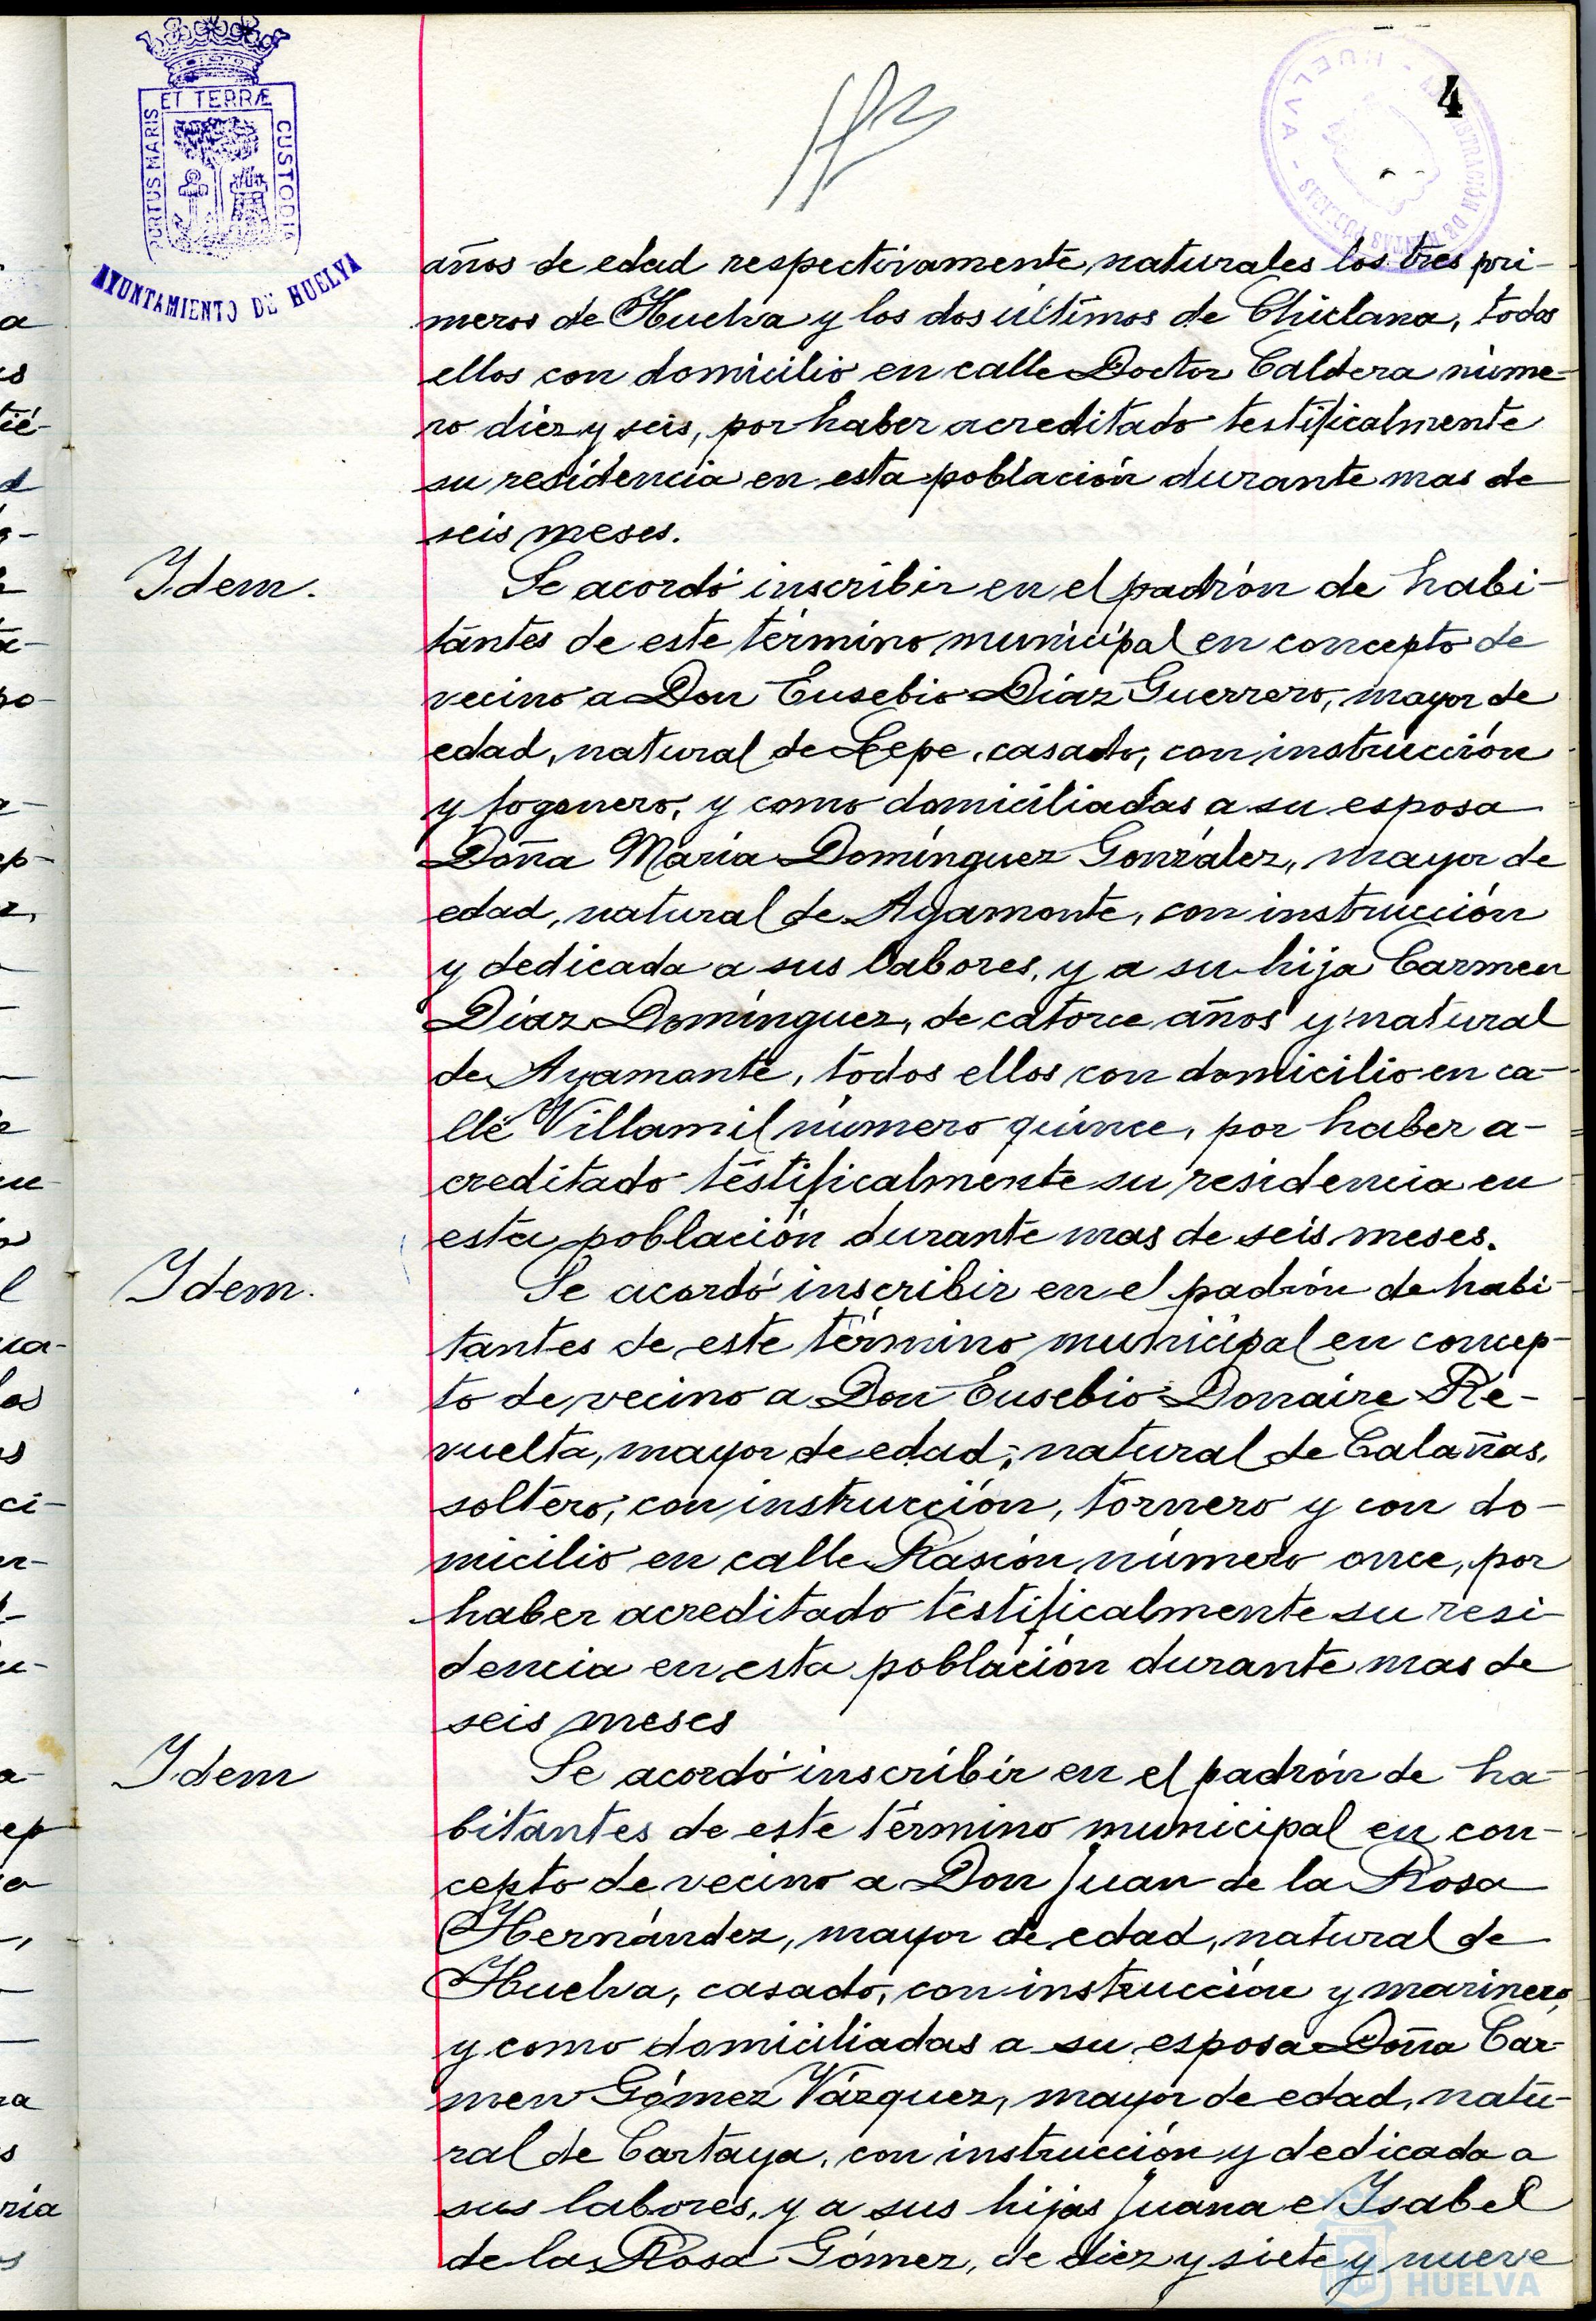 ET TERRÆ
PORTUS MARIS
CUSTODIA
AYUNTAMIENTO DE HUELVA
4
HUELVA
años de edad respectivamente, naturales los tres pri-
meros de Huelva y los dos últimos de Chiclana, todos
ellos con domicilio en calle Doctor Caldera núme-
ro diez y seis, por haber acreditado testificalmente
su residencia en esta población durante mas de
seis meses.
Idem.
Se acordó inscribir en el padrón de habi-
tantes de este término municipal en concepto de
vecino a Don Eusebio Díaz Guerrero, mayor de
edad, natural de Lepe, casado, con instrucción
y fogonero, y como domiciliadas a su esposa
Doña María Domínguez González, mayor de
edad, natural de Ayamonte, con instrucción
y dedicada a sus labores, y a su hija Carmen
Díaz Domínguez, de catorce años y natural
de Ayamonte, todos ellos con domicilio en ca-
lle Villamil número quince, por haber a-
creditado testificalmente su residencia en
esta población durante mas de seis meses.
Idem.
Se acordó inscribir en el padrón de habi-
tantes de este término municipal en concep-
to de vecino a Don Eusebio Donaire Re-
vuelta, mayor de edad, natural de Calañas,
soltero, con instrucción, tornero y con do-
micilio en calle Rascón número once, por
haber acreditado testificalmente su resi-
dencia en esta población durante mas de
seis meses
Idem
Se acordó inscribir en el padrón de ha-
bitantes de este término municipal en con-
cepto de vecino a Don Juan de la Rosa
Hernández, mayor de edad, natural de
Huelva, casado, con instrucción y marinero,
y como domiciliadas a su esposa Doña Car-
men Gómez Vázquez, mayor de edad, natu-
ral de Cartaya, con instrucción y dedicada a
sus labores, y a sus hijas Juana e Isabel
de la Rosa Gómez, de diez y siete y nueve
HUELVA